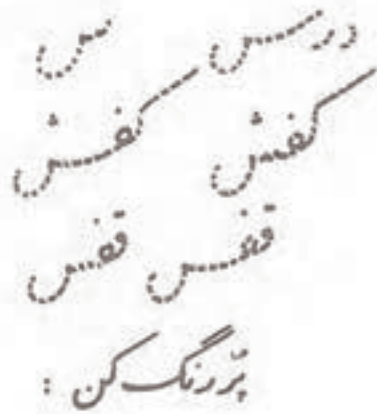 درس س
کفش کفش
قفس قفس
پُررنگ کن :